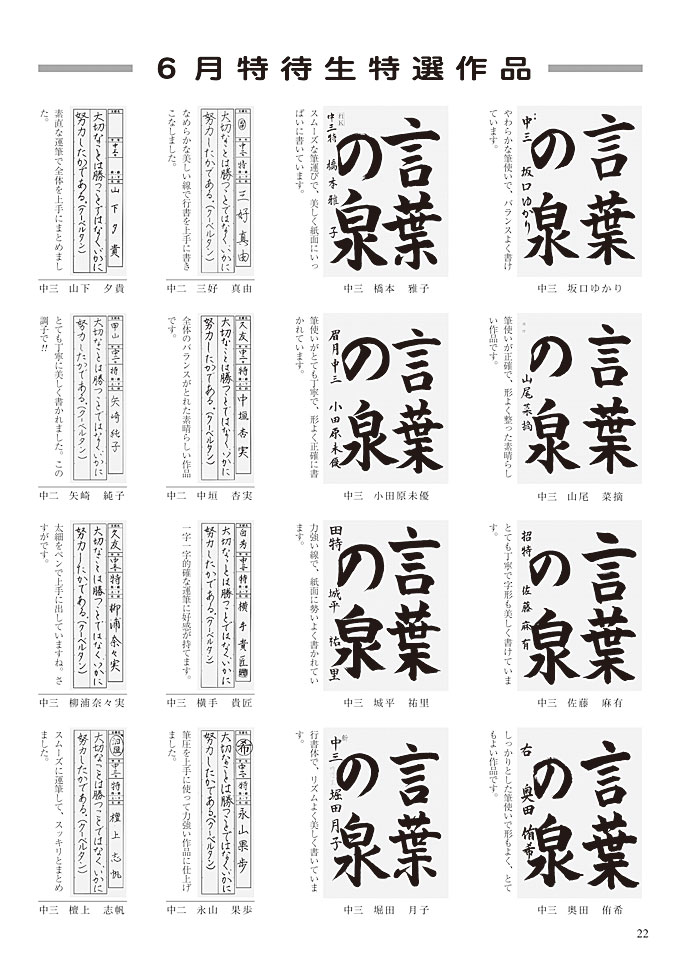 6月特待生特選作品
言葉
の泉
中三 坂口ゆかり
やわらかな筆使いで、バランスよく書け
ています。
中三 坂口ゆかり
言葉
の泉
中三特 橋本雅子
スムーズな筆運びで、美しく紙面にいっ
ぱいに書いています。
中三 橋本 雅子
中二 特 三好真由
大切なことは勝つことではなく、いかに
努力したかである。(クーベルタン)
なめらかな美しい線で行書を上手に書き
こなしました。
中二 三好 真由
中三 山下夕貴
大切なことは勝つことではなく、いかに
努力したかである。(クーベルタン)
素直な運筆で全体を上手にまとめまし
た。
中三 山下 夕貴
言葉
の泉
山尾菜摘
筆使いが正確で、形よく整った素晴らし
い作品です。
中三 山尾 菜摘
言葉
の泉
眉月中三 小田原未優
筆使いがとても丁寧で、形よく正確に書
かれています。
中三 小田原未優
久友 中二 特 中垣杏実
大切なことは勝つことではなく、いかに
努力したかである。(クーベルタン)
全体のバランスがとれた素晴らしい作品
です。
中二 中垣 杏実
甲山 中二 特 矢崎純子
大切なことは勝つことではなく、いかに
努力したかである。(クーベルタン)
とても丁寧に美しく書かれました。この
調子で!!
中二 矢崎 純子
言葉
の泉
招特 佐藤麻有
とても丁寧で字形も美しく書けていま
す。
中三 佐藤 麻有
言葉
の泉
田特 城平祐里
力強い線で、紙面に勢いよく書かれてい
ます。
中三 城平 祐里
白秀 中三 特 横手貴匠
大切なことは勝つことではなく、いかに
努力したかである。(クーベルタン)
一字一字的確な運筆に好感が持てます。
中三 横手 貴匠
久友 中三 特 柳浦奈々実
大切なことは勝つことではなく、いかに
努力したかである。(クーベルタン)
太細をペンで上手に出していますね。さ
すがです。
中三 柳浦奈々実
言葉
の泉
右 奥田侑希
しっかりとした筆使いで形もよく、とて
もよい作品です。
中三 奥田 侑希
言葉
の泉
中三 堀田月子
行書体で、リズムよく美しく書いていま
す。
中三 堀田 月子
希 中二 特 永山果歩
大切なことは勝つことではなく、いかに
努力したかである。(クーベルタン)
筆圧を上手に使って力強い作品に仕上げ
ました。
中二 永山 果歩
中三 特 檀上志帆
大切なことは勝つことではなく、いかに
努力したかである。(クーベルタン)
スムーズに運筆して、スッキリとまとめ
ました。
中三 檀上 志帆
22